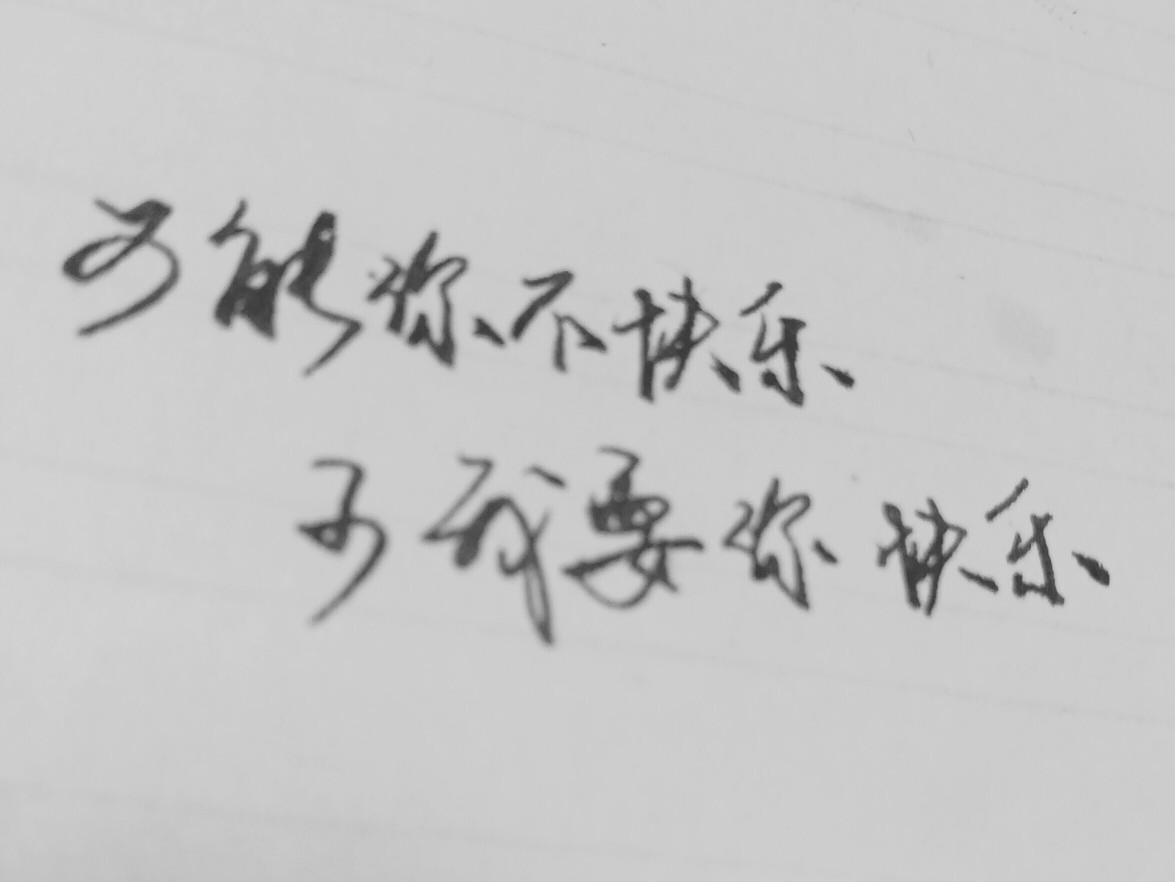 可能你不快乐
可我要你快乐